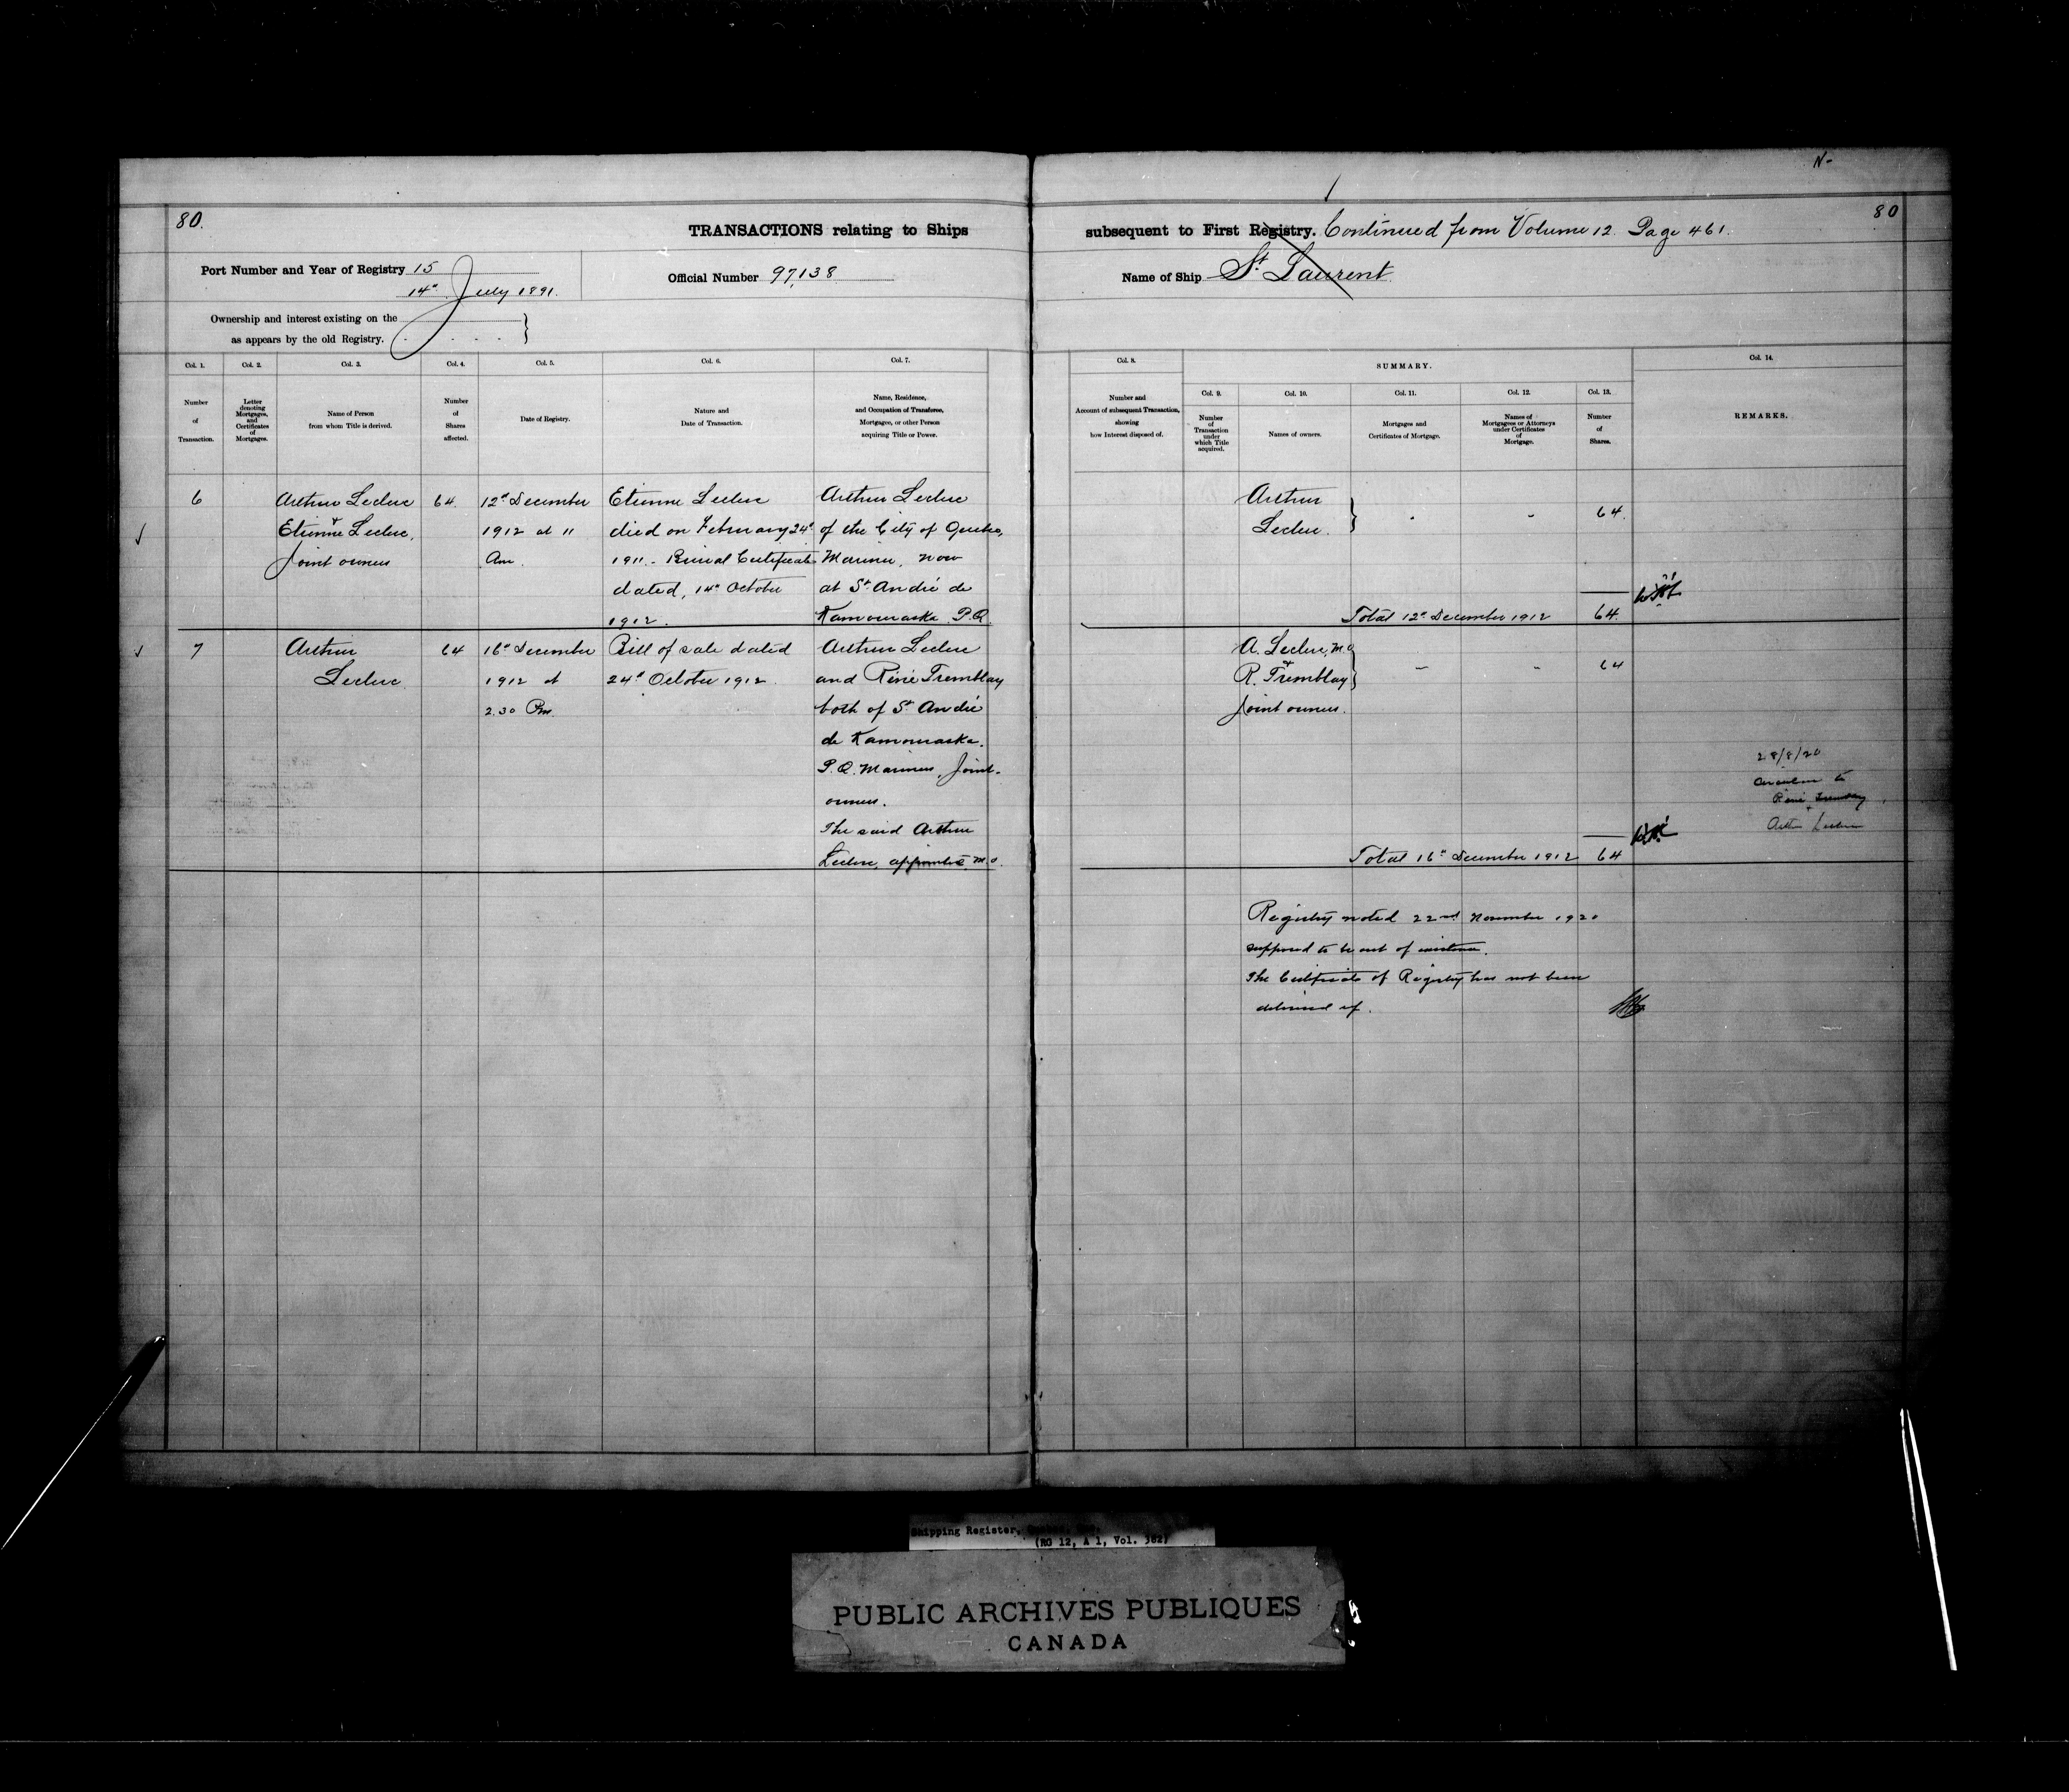 N-
80.
TRANSACTIONS relating to Ships
subsequent to First Registry. Continued from Volume 12. Page 461.
80
Port Number and Year of Registry 15
14" July 1891.
Official Number 97,138
Name of Ship St Laurent
Ownership and interest existing on the
as appears by the old Registry.
Col. 1.
Number
of
Transaction.
Col. 2.
Letter
denoting
Mortgages,
and
Certificates
of
Mortgages.
Col. 3.
Name of Person
from whom Title is derived.
Col. 4.
Number
of
Shares
affected.
Col. 5.
Date of Registry.
Col. 6.
Nature and
Date of Transaction.
Col. 7.
Name, Residence,
and Occupation of Transferee,
Mortgagee, or other Person
acquiring Title or Power.
Col. 8.
Number and
Account of subsequent Transaction,
showing
how Interest disposed of.
SUMMARY.
Col. 9.
Number
of
Transaction
under
which Title
acquired.
Col. 10.
Names of owners.
Col. 11.
Mortgages and
Certificates of Mortgage.
Col. 12.
Names of
Mortgagees or Attorneys
under Certificates
of
Mortgage.
Col. 13.
Number
of
Shares.
Col. 14.
REMARKS.
6
Arthur Leclerc
&
Etienne Leclerc,
Joint owners
64.
12" December
1912 at 11
Am.
Etienne Leclerc
died on February 24"
1911. - Burial Certificate
dated, 14" October
1912.
Arthur Leclerc
of the City of Quebec,
Mariner, now
at St André de
Kamouraska P.Q.
Arthur
Leclerc.
64.
Total 12" December 1912
64.
7
Arthur
Leclerc
64
16" December
1912 at
2.30 Pm.
Bill of sale dated
24" October 1912.
Arthur Leclerc
and Réné Tremblay
both of St André
de Kamouraska.
P.Q. Mariners, Joint-
owners.
The said Arthur
Leclerc, appointed M.O.
A. Leclerc, M.O
&
R. Tremblay
Joint owners.
64
Total 16" December 1912
64
28/8/20
Circular to
René Tremblay
+
Arthur Leclerc
Registry noted 22nd November 1920
supposed to be out of existence.
The Certificate of Registry has not been
delivered up.
Shipping Register,
(RG 12, A 1, Vol. 382)
PUBLIC ARCHIVES PUBLIQUES
CANADA